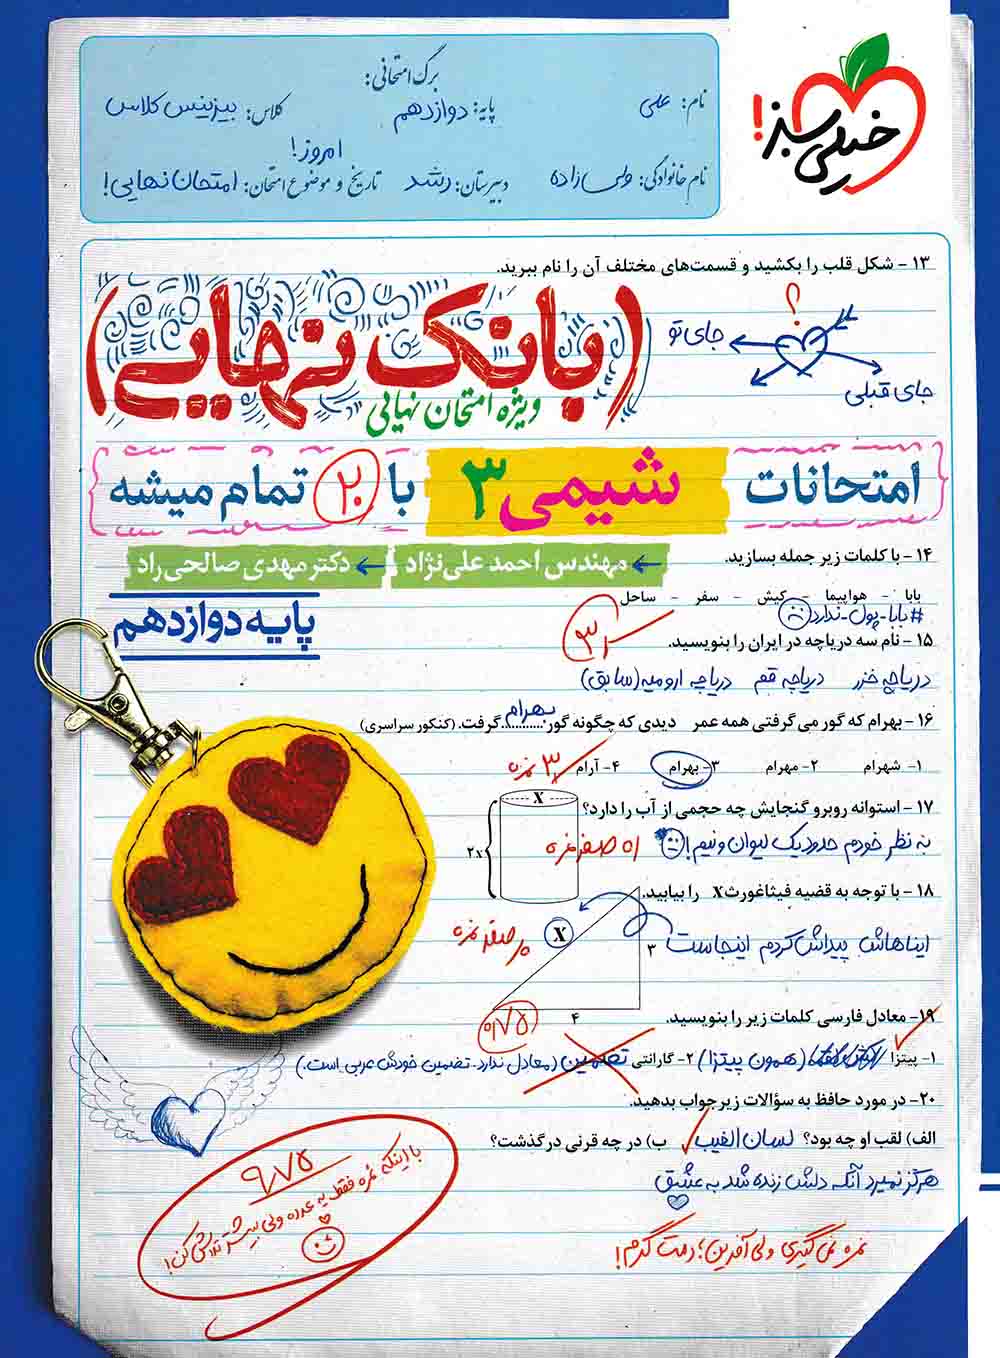 خیلی سبز!
برگ امتحانی:
نام: علی
پایه: دوازدهم
کلاس: بیزینس کلاس
نام خانوادگی: ولی زاده
دبیرستان: رشد
تاریخ و موضوع امتحان: امروز! امتحان نهایی!
۱۳ - شکل قلب را بکشید و قسمت‌های مختلف آن را نام ببرید.
؟
جای تو
جای قبلی
(بانک نهایی)
ویژه امتحان نهایی
امتحانات شیمی ۳ با ۲۰ تمام میشه
مهندس احمد علی‌نژاد ← دکتر مهدی صالحی‌راد ←
پایه دوازدهم
۱۴ - با کلمات زیر جمله بسازید.
بابا - هواپیما - کیش - سفر - ساحل
#بابا_پول_ندارد
۱۵ - نام سه دریاچه در ایران را بنویسید.
دریاچه خزر دریاچه قم دریاچه ارومیه (سابق)
۱۶ - بهرام که گور می‌گرفتی همه عمر دیدی که چگونه گور بهرام گرفت. (کنکور سراسری)
۱- شهرام ۲- مهرام ۳- بهرام ۴- آرام
۳ نمره
۱۷ - استوانه روبرو گنجایش چه حجمی از آب را دارد؟
X
۲x
به نظر خودم حدود یک لیوان و نیم!
صفر نمره
۱۸ - با توجه به قضیه فیثاغورث X را بیابید.
X
۳
۴
ایناهاش پیداش کردم اینجاست
صفر نمره
۱۹- معادل فارسی کلمات زیر را بنویسید.
۰/۷۵
۱- پیتزا (همون پیتزا) ۲- گارانتی تضمین (معادل ندارد. تضمین خودش عربی است.)
۲۰- در مورد حافظ به سؤالات زیر جواب بدهید.
الف) لقب او چه بود؟ لسان الغیب ب) در چه قرنی درگذشت؟
هرگز نمیرد آنکه دلش زنده شد به عشق
نمره نمی‌گیری ولی آفرین! دمت گرم!
۹/۷۵
با اینکه نمره فقط یه عدده ولی بیشتر تلاش کن!